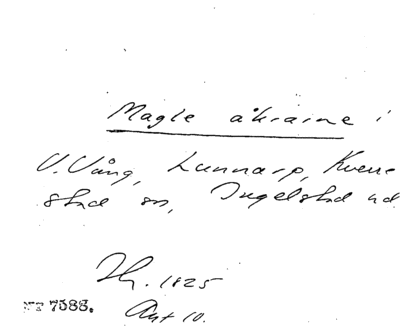 Magle åkrarne i
V. Vång, Lunnarp, Kverre
stad sn, Ingelstad hd.
1825
Akt 10.
7588.